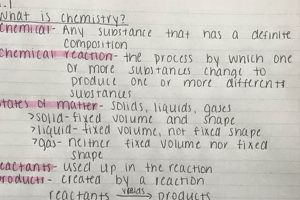 What is chemistry?
chemical- Any substance that has a definite
composition
chemical reaction- the process by which one
or more substances change to
produce one or more different
substances
states of matter- solids, liquids, gases
>solid- fixed volume and shape
>liquid- fixed volume, not fixed shape
>gas- neither fixed volume nor fixed
shape
reactants- used up in the reaction
products- created by a reaction
reactants yields products